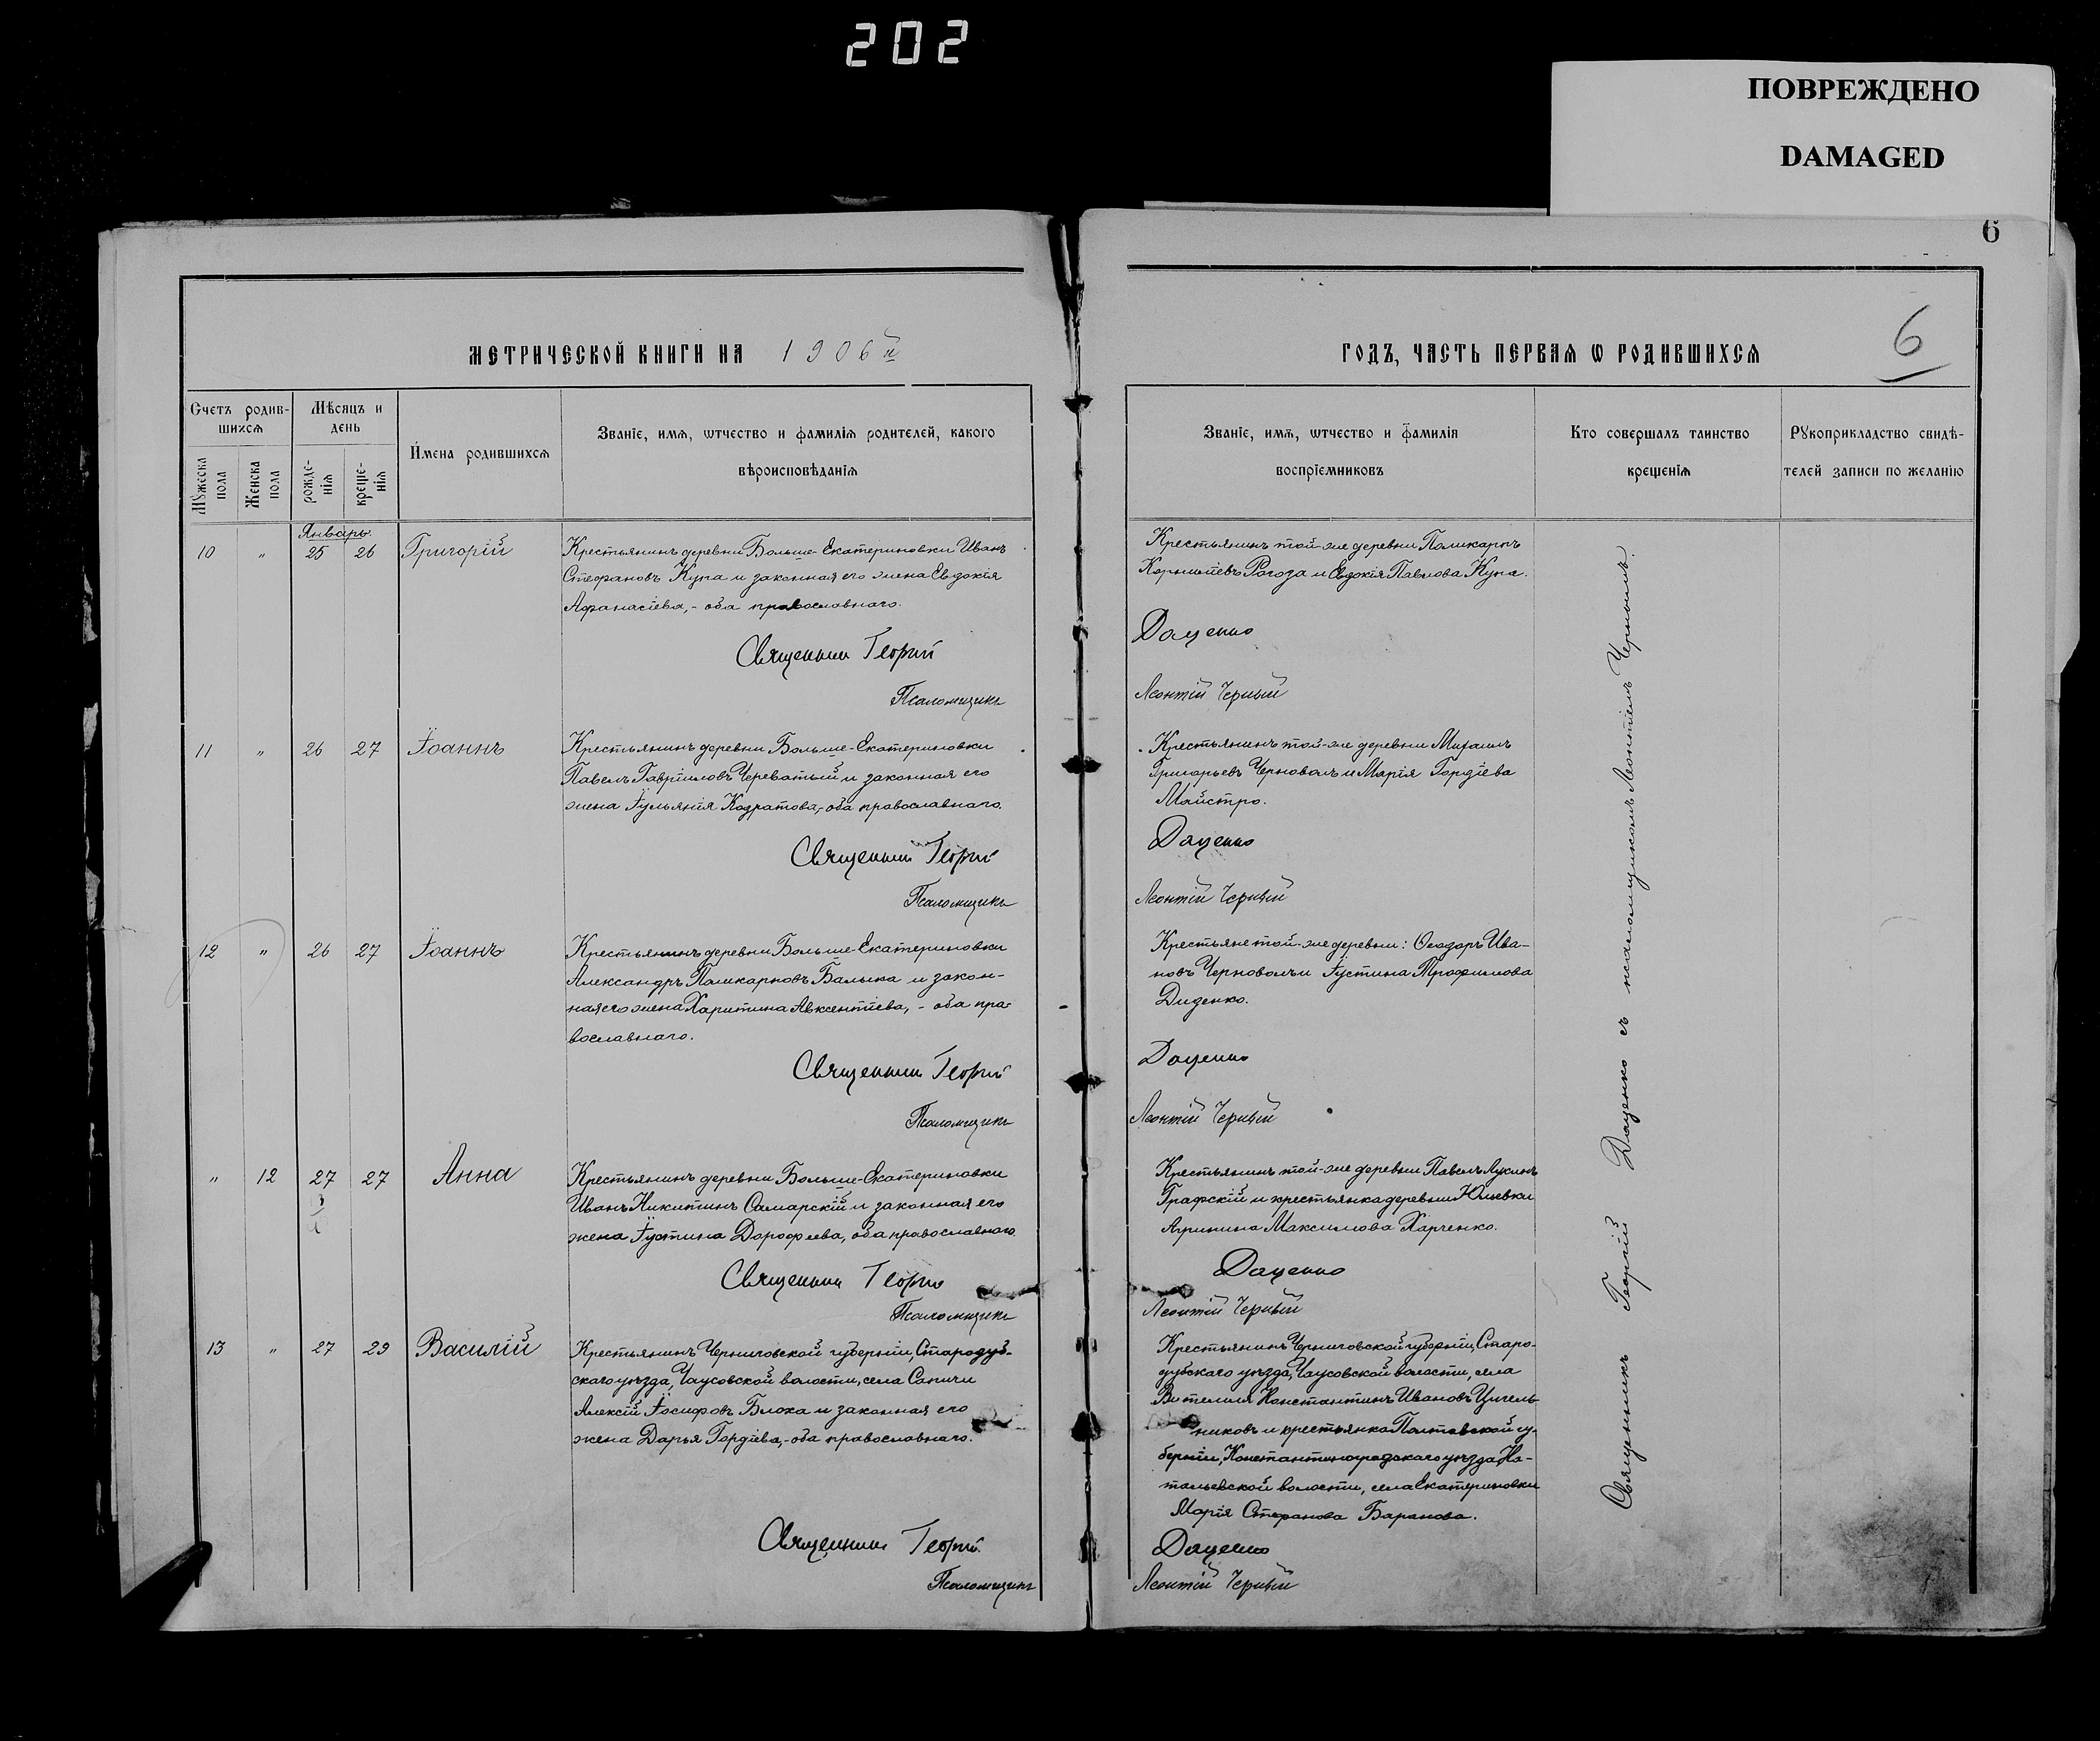 202
ПОВРЕЖДЕНО
DAMAGED
6
МЕТРИЧЕСКОЙ КНИГИ НА 1906й
ГОДЪ, ЧАСТЬ ПЕРВАЯ Ѡ РОДИВШИХСЯ
6
Счетъ родив-
шихсѧ
Мѣсяцъ и
день
Мꙋжеска
пола
Женска
пола
рожде-
нїѧ
креще-
нїѧ
Имена родившихсѧ
Званїе, имѧ, ѿчество и фамилїѧ родителей, какого
вѣроисповѣданїѧ
Званїе, имѧ, ѿчество и фамилїя
воспрїемниковъ
Кто совершалъ таинство
крещенїѧ
Рꙋкоприкладство свидѣ-
телей записи по желанїю
Январь.
10 " 25 26 Григорій
Крестьянинъ деревни Больше-Екатериновки Иванъ
Стефановъ Купа и законная его жена Евдокія
Афанасіева, - оба православнаго.
Священник Георгий
Псаломщикъ
Крестьянинъ той-же деревни Поликарпъ
Корнилiевъ Рогоза и Евдокія Павлова Купа.
Даценко
Леонтій Черный
11 " 26 27 Іоаннъ
Крестьянинъ деревни Больше-Екатериновки
Павелъ Гавріиловъ Череватый и законная его
жена Іульянія Кодратова, - оба православнаго.
Священник Георгий
Псаломщикъ
Крестьянинъ той-же деревни Михаилъ
Григорьевъ Черноволъ и Марія Гордіева
Майстро.
Даценко
Леонтій Черный
12 " 26 27 Іоаннъ
Крестьянинъ деревни Больше-Екатериновки
Александръ Поликарповъ Балыка и закон-
ная его жена Харитина Авксентіева, - оба пра-
вославнаго.
Священник Георгий
Псаломщикъ
Крестьяне той-же деревни: Ѳеодоръ Ива-
новъ Черноволъ и Іустина Трофимова
Диденко.
Даценко
Леонтій Черный
" 12 27 27 Анна
Крестьянинъ деревни Больше-Екатериновки
Иванъ Никитинъ Самарскій и законная его
жена Іустина Дорофеева, оба православнаго.
Священник Георгий
Псаломщикъ
Крестьянинъ той-же деревни Павелъ Лукинъ
Графскій и крестьянка деревни Юльевки
Агрипина Максимова Харченко.
Даценко
Леонтій Черный
13 " 27 29 Василій
Крестьянинъ Черниговской губерніи, Стародуб-
скаго уѣзда, Чаусовской волости, села Сапичи
Алексій Іосифовъ Блоха и законная его
жена Дарья Гордіева, - оба православнаго.
Священник Георгий
Псаломщикъ
Крестьянинъ Черниговской губерніи, Старо-
дубскаго уѣзда, Чаусовской волости, села
Витемля Константинъ Ивановъ Цигель-
никовъ и крестьянка Полтавской гу-
берніи, Константиноградскаго уѣзда, На-
тальевской волости, села Екатериновки
Марія Стефанова Баранова.
Даценко
Леонтій Черный
Священникъ Георгій Даценко съ псаломщикомъ Леонтіемъ Чернымъ.